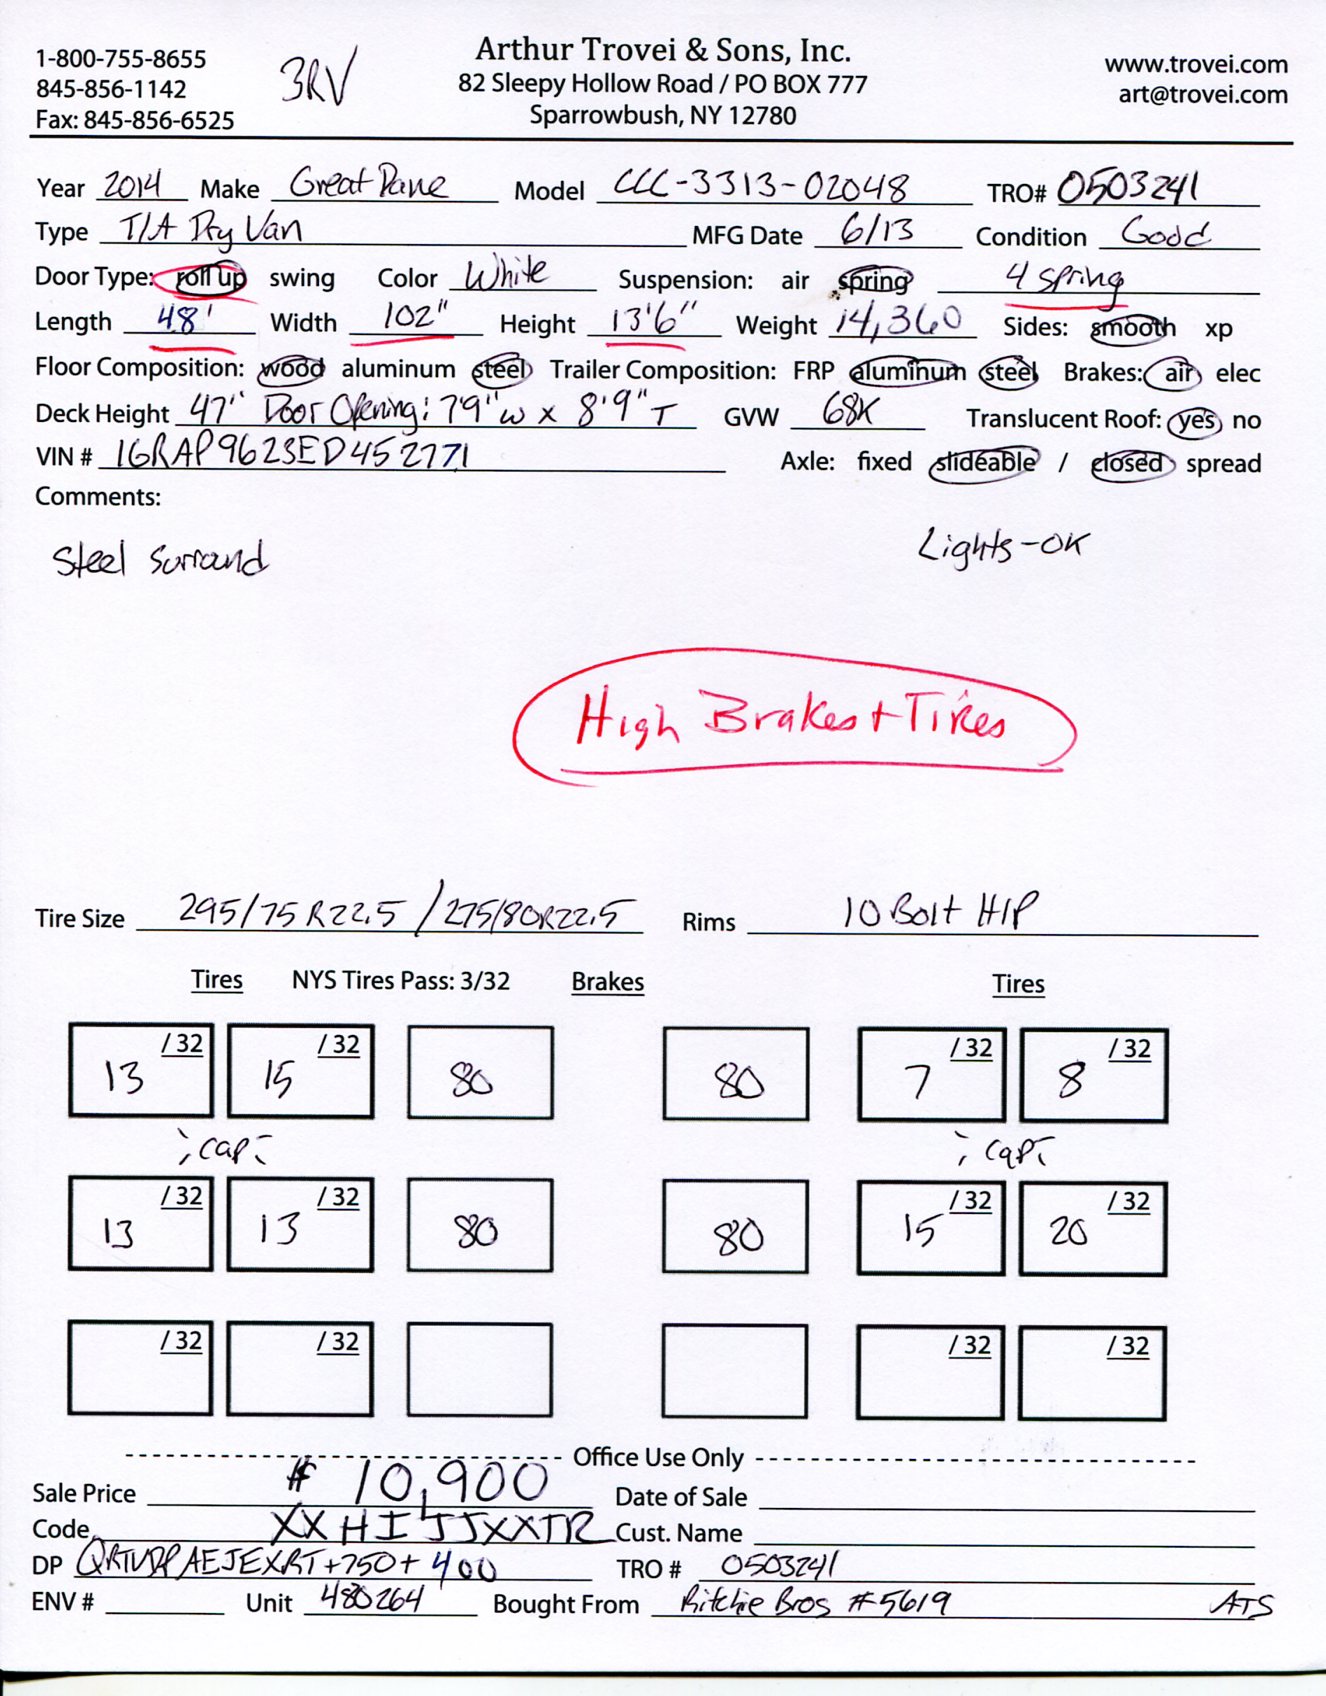 1-800-755-8655
845-856-1142
Fax: 845-856-6525
3RV
Arthur Trovei & Sons, Inc.
82 Sleepy Hollow Road / PO BOX 777
Sparrowbush, NY 12780
www.trovei.com
art@trovei.com
Year 2014 Make Great Dane Model CCC-3313-02048 TRO# 0503241
Type T/A Dry Van MFG Date 6/13 Condition Good
Door Type: roll up swing Color White Suspension: air spring 4 spring
Length 48' Width 102" Height 13'6" Weight 14,360 Sides: smooth xp
Floor Composition: wood aluminum steel Trailer Composition: FRP aluminum steel Brakes: air elec
Deck Height 47" Door Opening: 7'9" W x 8'9" T GVW 68K Translucent Roof: yes no
VIN # 1GRAP9623ED452771 Axle: fixed slideable / closed spread
Comments:
Steel Surround Lights-OK
High Brakes + Tires
Tire Size 295/75R22.5 / 275/80R22.5 Rims 10 Bolt H/P
Tires NYS Tires Pass: 3/32 Brakes Tires
13 /32 15 /32 80 80 7 /32 8 /32
; cap; ; cap;
13 /32 13 /32 80 80 15 /32 20 /32
/32 /32 /32 /32
Office Use Only
Sale Price $ 10,900 Date of Sale
Code XXHIJJXXTR Cust. Name
DP +750+400 TRO # 0503241
ENV # Unit 480264 Bought From Ritchie Bros #5619 ATS